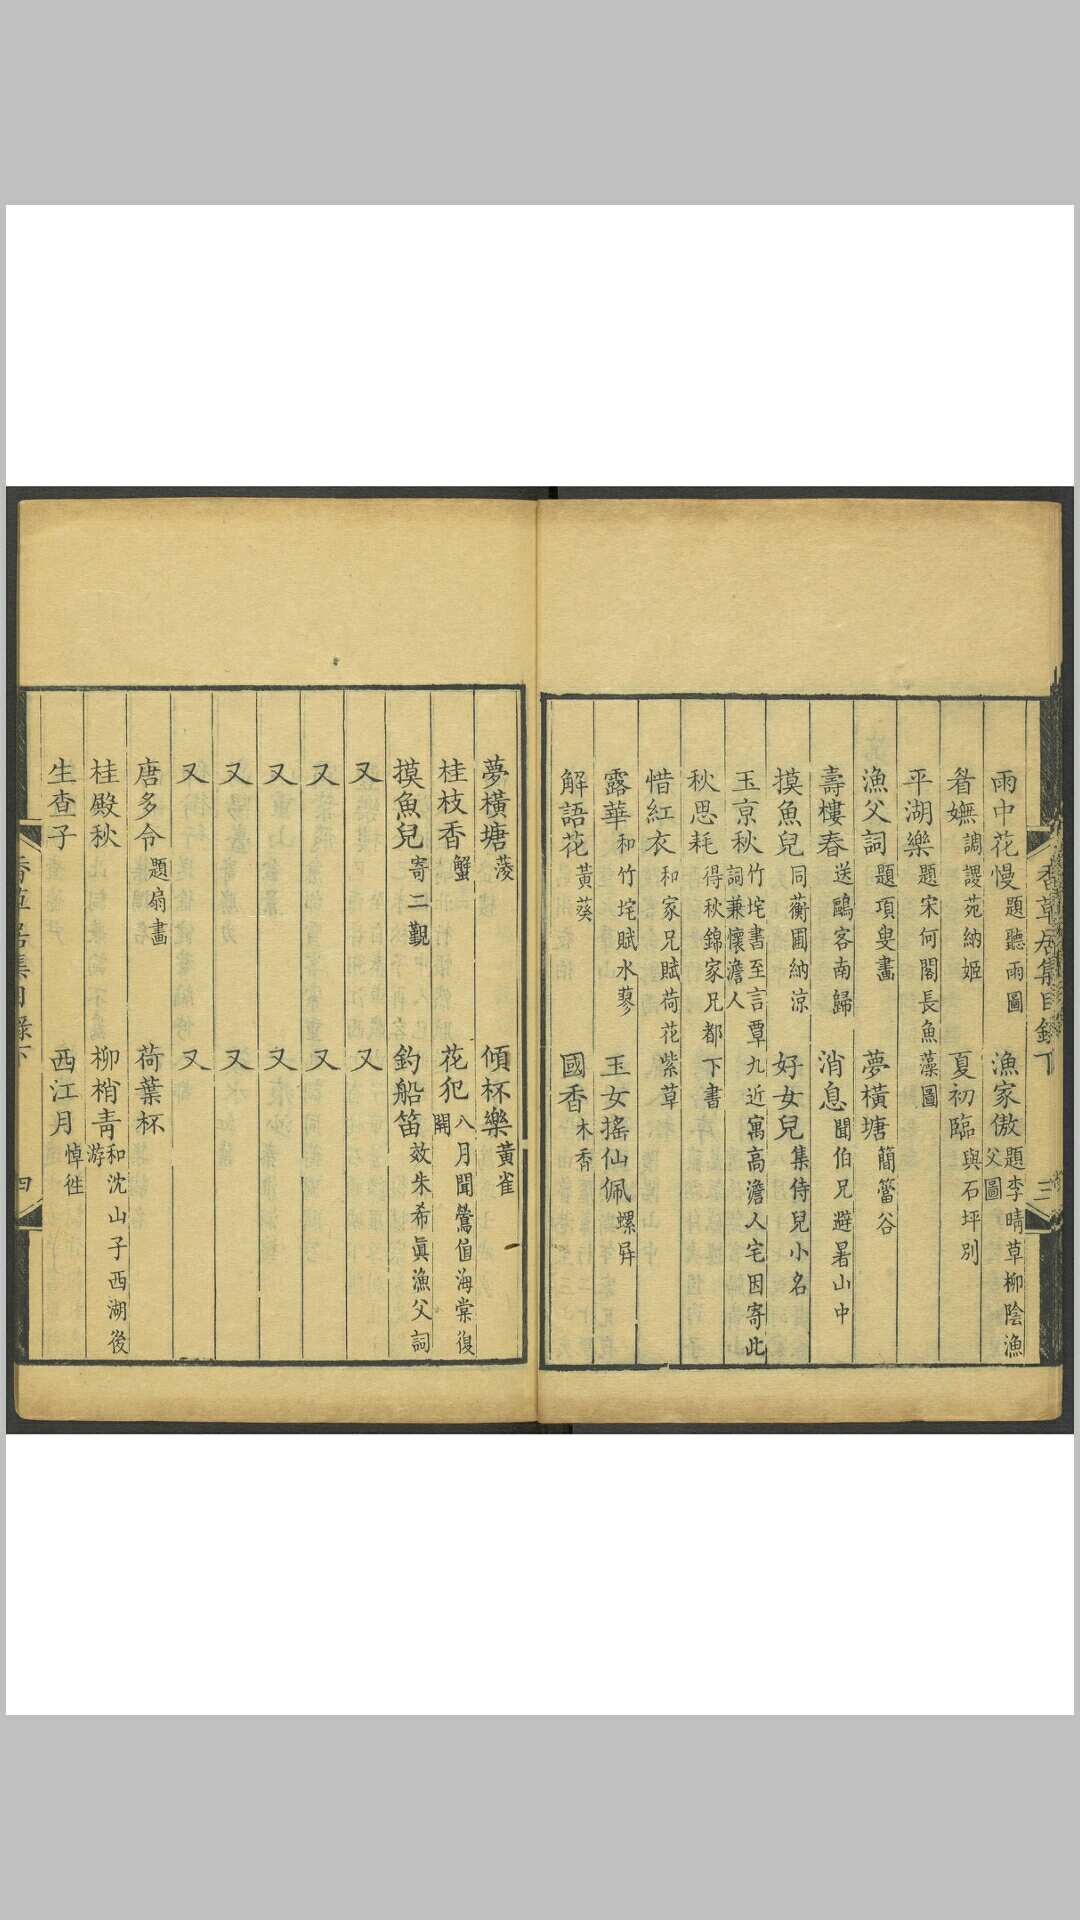 香草居集目錄下
三
雨中花慢題聽雨圖
漁家傲題李晴草柳陰漁父圖
眉嫵調謖苑納姬
夏初臨與石坪別
平湖樂題宋何閣長魚藻圖
漁父詞題項叟畫
夢橫塘簡簹谷
壽樓春送鷗客南歸
消息聞伯兄避暑山中
摸魚兒同蘅圃納涼
好女兒集侍兒小名
玉京秋竹垞書至言覃九近寓高澹人宅因寄此詞兼懷澹人
秋思耗得秋錦家兄都下書
惜紅衣和家兄賦荷花紫草
露華和竹垞賦水蓼
玉女搖仙佩螺屏
解語花黃葵
國香木香
夢橫塘菱
傾杯樂黃雀
桂枝香蟹
花犯八月聞鶯值海棠復開
摸魚兒寄二觀
釣船笛效朱希眞漁父詞
又
又
又
又
又
又
又
又
又
又
唐多令題扇畫
荷葉杯
桂殿秋
柳梢青和沈山子西湖後游
生查子
西江月悼往
香草居集目錄下
四